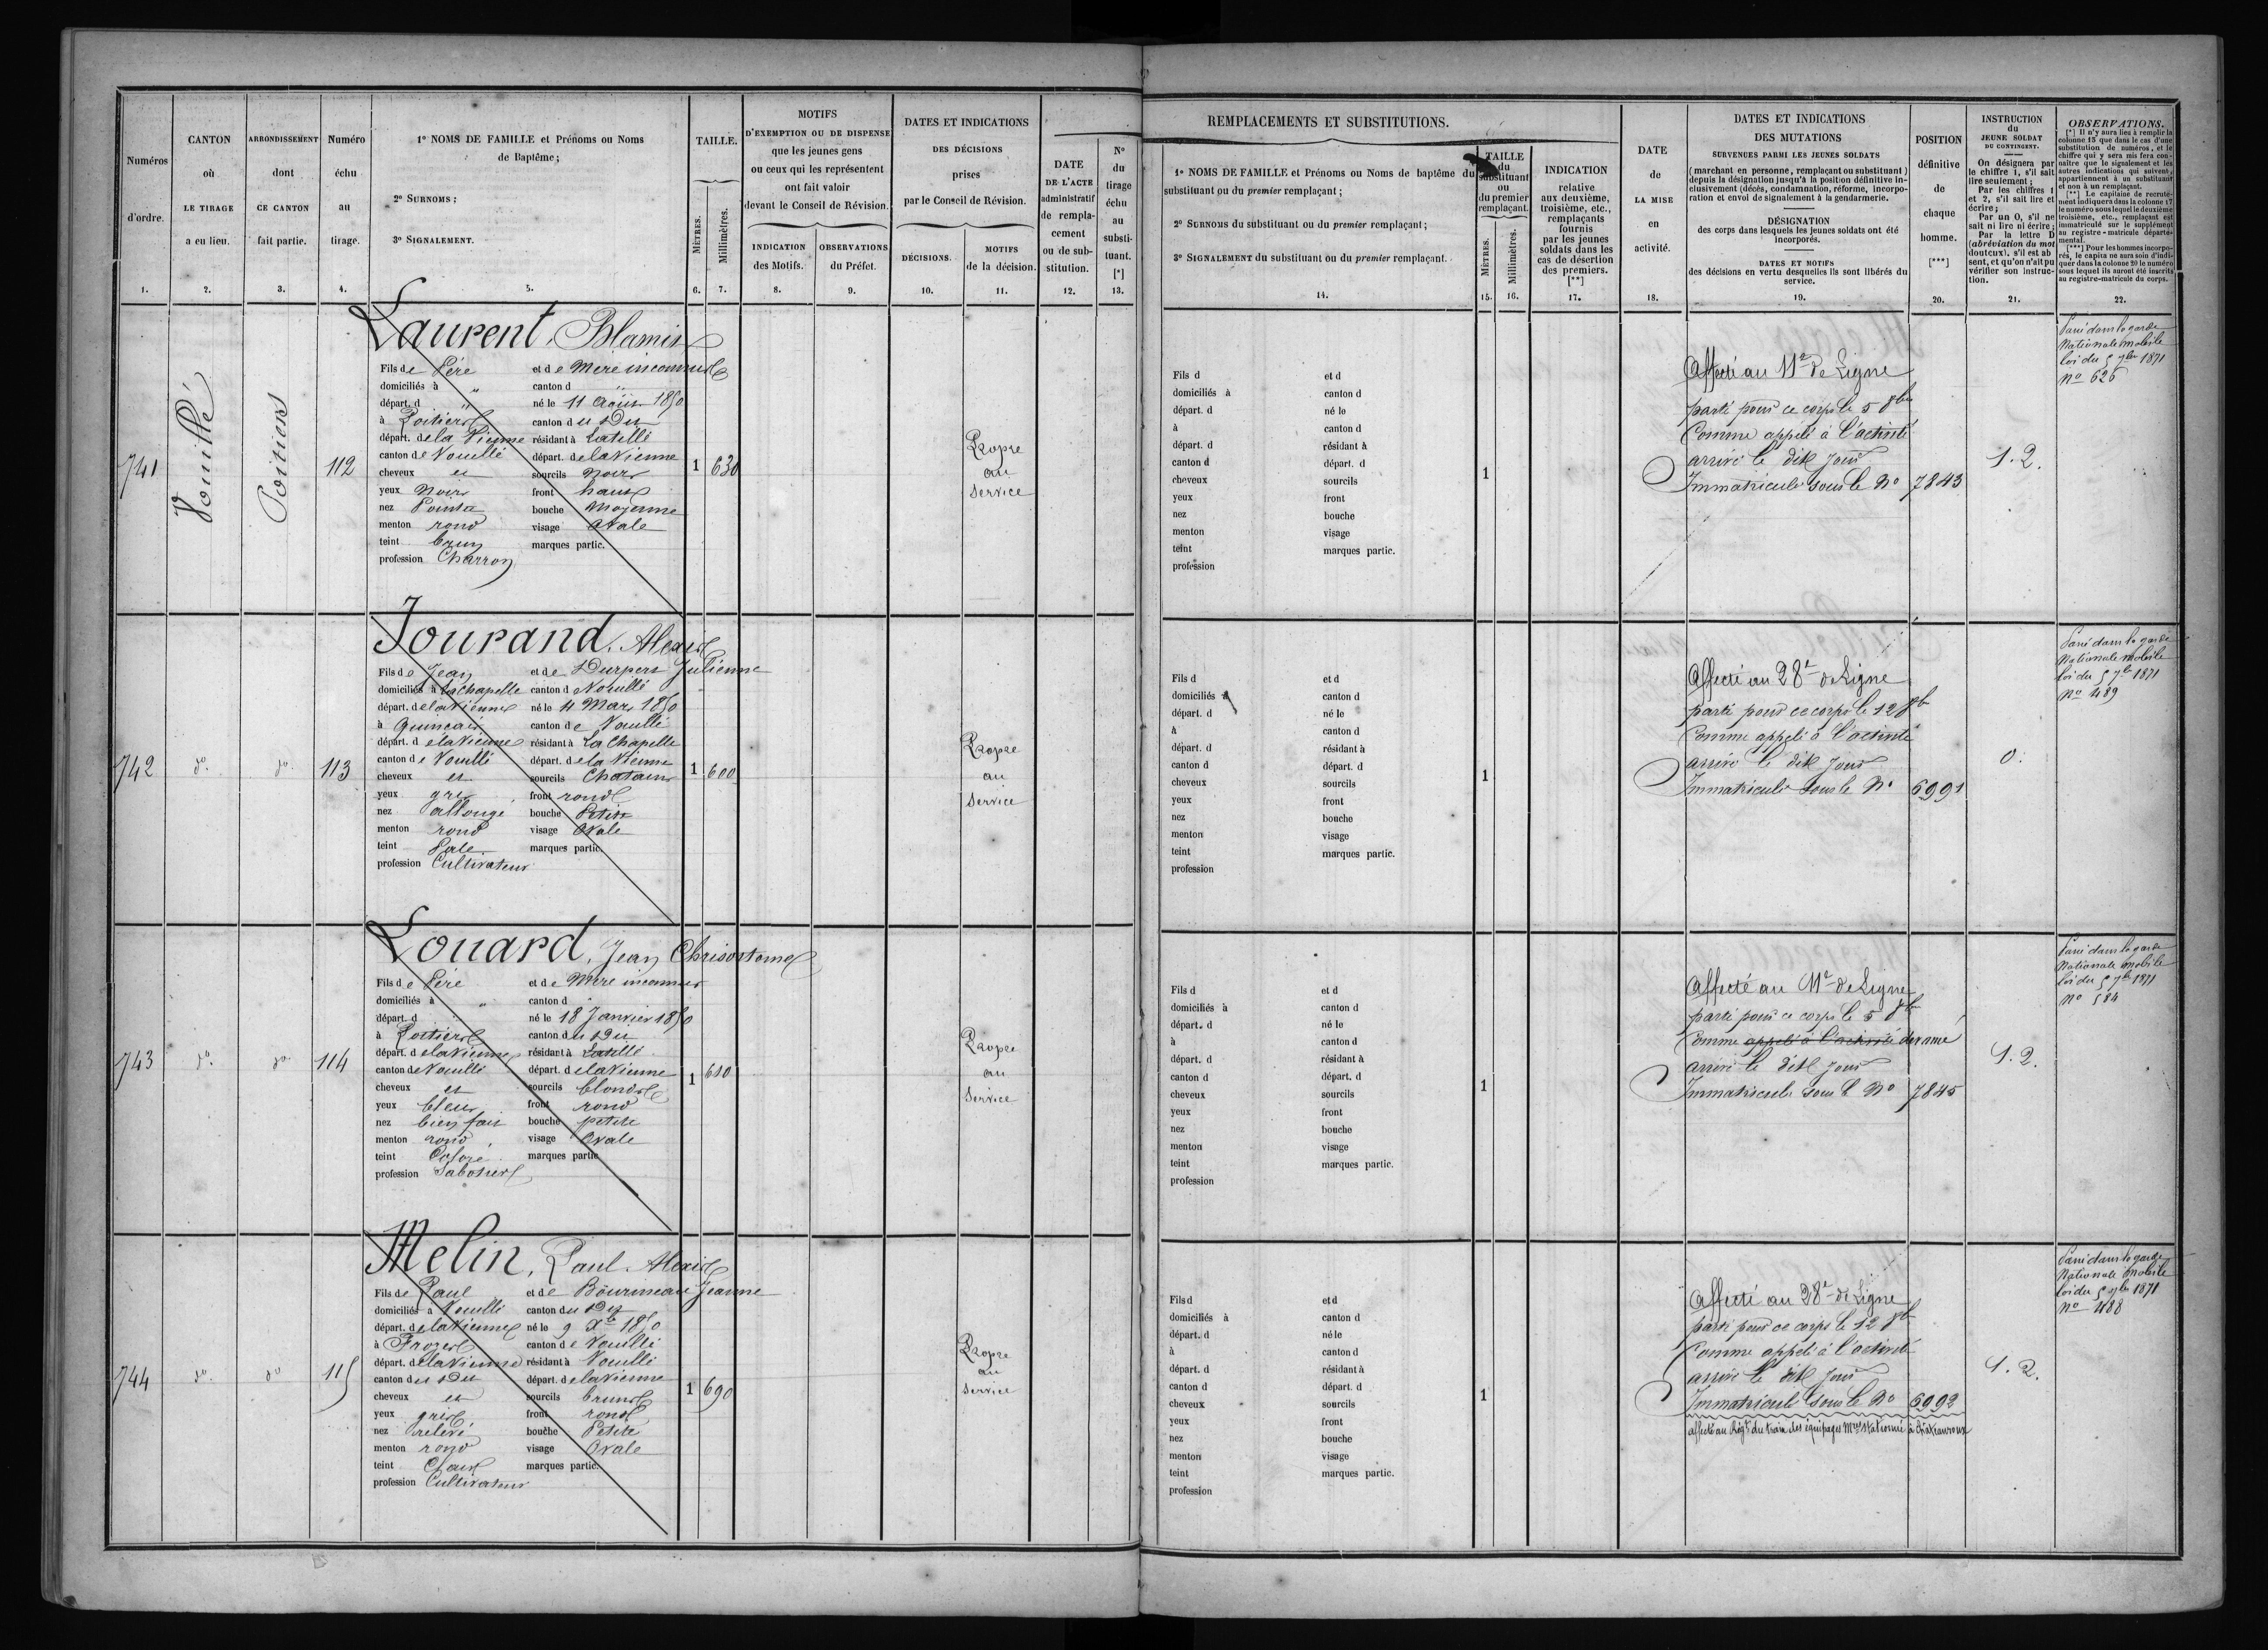 Numéros d'ordre.
CANTON où LE TIRAGE a eu lieu.
ARRONDISSEMENT dont CE CANTON fait partie.
Numéro échu au tirage.
1º NOMS DE FAMILLE et Prénoms ou Noms
de Baptême;
2º SURNOMS;
3º SIGNALEMENT.
TAILLE.
MÈTRES.
Millimètres.
MOTIFS
D'EXEMPTION OU DE DISPENSE
que les jeunes gens
ou ceux qui les représentent
ont fait valoir
devant le Conseil de Révision.
INDICATION des Motifs.
OBSERVATIONS du Préfet.
DATES ET INDICATIONS
DES DÉCISIONS
prises
par le Conseil de Révision.
DÉCISIONS.
MOTIFS de la décision.
DATE
DE L'ACTE
administratif
de rempla-
cement
ou de sub-
stitution.
Nº
du
tirage
échu
au
substi-
tuant.
[*]
1. 2. 3. 4. 5. 6. 7. 8. 9. 10. 11. 12. 13.
741
Vouillé
Poitiers
112
Laurent, Blamis
Fils de Père et de Mère inconnus
domiciliés à " canton d "
départ. d " né le 11 Août 1850
à Poitiers canton du Du
départ. de la Vienne résidant à Latillé
canton de Vouillé départ. de la Vienne
cheveux et sourcils noirs
yeux noirs front haut
nez Pointu bouche moyenne
menton rond visage Ovale
teint brun marques partic.
profession Charron
1 630
Propre
au
Service
742
do.
do.
113
Jourand, Alexis
Fils de Jean et de Durpers Julienne
domiciliés à la chapelle canton de Vouillé
départ. de la Vienne né le 4 Mars 1850
à Quinçais canton de Vouillé
départ. de la Vienne résidant à La Chapelle
canton de Vouillé départ. de la Vienne
cheveux et sourcils Chatains
yeux gris front rond
nez allongé bouche Petite
menton rond visage Ovale
teint Pale marques partic.
profession Cultivateur
1 600
Propre
au
Service
743
do.
do.
114
Louard, Jean Chrisostome
Fils de Père et de Mère inconnus
domiciliés à " canton d "
départ. d né le 18 Janvier 1850
à Poitiers canton du Du
départ. de la Vienne résidant à Latillé
canton de Vouillé départ. de la Vienne
cheveux et sourcils blonds
yeux bleus front rond
nez bien fait bouche petite
menton rond visage Ovale
teint Coloré marques partic.
profession Sabotier
1 610
Propre
au
Service
744
do.
do
115
Melin, Paul Alexis
Fils de Paul et de Bourmeau Jeanne
domiciliés à Vouillé canton du Du
départ. de la Vienne né le 9 Xbre 1850
à Frozes canton de Vouillé
départ. de la Vienne résidant à Vouillé
canton du Du départ. de la Vienne
cheveux et sourcils bruns
yeux gris front rond
nez relevé bouche Petite
menton rond visage Ovale
teint Clair marques partic.
profession Cultivateur
1 690
Propre
au
Service
REMPLACEMENTS ET SUBSTITUTIONS.
1º NOMS DE FAMILLE et Prénoms ou Noms de baptême du
substituant ou du premier remplaçant;
2º SURNOMS du substituant ou du premier remplaçant;
3º SIGNALEMENT du substituant ou du premier remplaçant.
TAILLE
du
substituant
ou
du premier
remplaçant.
MÈTRES.
Millimètres.
INDICATION
relative
aux deuxième,
troisième, etc.,
remplaçants
fournis
par les jeunes
soldats dans les
cas de désertion
des premiers.
[**]
DATE
de
LA MISE
en
activité.
DATES ET INDICATIONS
DES MUTATIONS
SURVENUES PARMI LES JEUNES SOLDATS
(marchant en personne, remplaçant ou substituant)
depuis la désignation jusqu'à la position définitive in-
clusivement (décès, condamnation, réforme, incorpo-
ration et envoi de signalement à la gendarmerie.
DÉSIGNATION
des corps dans lesquels les jeunes soldats ont été
incorporés.
DATES ET MOTIFS
des décisions en vertu desquelles ils sont libérés du
service.
POSITION
définitive
de
chaque
homme.
[***]
INSTRUCTION
du
JEUNE SOLDAT
DU CONTINGENT.
On désignera par
le chiffre 1, s'il sait
lire seulement;
Par les chiffres 1
et 2, s'il sait lire et
écrire;
Par un 0, s'il ne
sait ni lire ni écrire;
Par la lettre D
(abréviation du mot
douteux), s'il est ab
sent, et qu'on n'ait pu
vérifier son instruc-
tion.
OBSERVATIONS.
[*] Il n'y aura lieu à remplir la
colonne 15 que dans le cas d'une
substitution de numéros, et le
chiffre qui y sera mis fera con-
naître que le signalement et les
autres indications qui suivent,
appartiennent à un substituant
et non à un remplaçant.
[**] Le capitaine de recrute-
ment indiquera dans la colonne 17
le numéro sous lequel le deuxième
troisième, etc., remplaçant est
immatriculé sur le supplément
au registre-matricule départe-
mental.
[***] Pour les hommes incorpo-
rés, le capita ne aura soin d'indi-
quer dans la colonne 20 le numéro
sous lequel ils auront été inscrits
au registre-matricule du corps.
14. 15. 16. 17. 18. 19. 20. 21. 22.
Fils d et d
domiciliés à canton d
départ. d né le
à canton d
départ. d résidant à
canton d départ. d
cheveux sourcils
yeux front
nez bouche
menton visage
teint marques partic.
profession
1
Affecté au 11e de Ligne
parti pour ce corps le 5 8bre
Comme appelé à l'activité
arrivé le dit jour
Immatriculé sous le No 7843
1.2.
Passé dans la garde
Nationale mobile
loi du 5 7bre 1871
No 626
Fils d et d
domiciliés à canton d
départ. d né le
à canton d
départ. d résidant à
canton d départ. d
cheveux sourcils
yeux front
nez bouche
menton visage
teint marques partic.
profession
1
Affecté au 28e de Ligne
parti pour ce corps le 12 8b
Comme appelé à l'activité
arrivé le dit jour
Immatriculé sous le No 6991
0.
Passé dans la garde
Nationale mobile
loi du 5 7b 1871
No 489
Fils d et d
domiciliés à canton d
départ. d né le
à canton d
départ. d résidant à
canton d départ. d
cheveux sourcils
yeux front
nez bouche
menton visage
teint marques partic.
profession
1
Affecté au 11e de Ligne
parti pour ce corps le 5 8bre
Comme appelé à l'activité devancé
arrivé le dit jour
Immatriculé sous le No 7845
1.2.
Passé dans la garde
Nationale mobile
loi du 5 7b 1871
No 584
Fils d et d
domiciliés à canton d
départ. d né le
à canton d
départ. d résidant à
canton d départ. d
cheveux sourcils
yeux front
nez bouche
menton visage
teint marques partic.
profession
1
Affecté au 28e de Ligne
parti pour ce corps le 12 8b
Comme appelé à l'activité
arrivé le dit jour
Immatriculé sous le No 6992
affecté au Régt du train des équipages Mres stationné à Châteauroux
1.2.
Passé dans la garde
Nationale mobile
loi du 5 7bre 1871
No 488